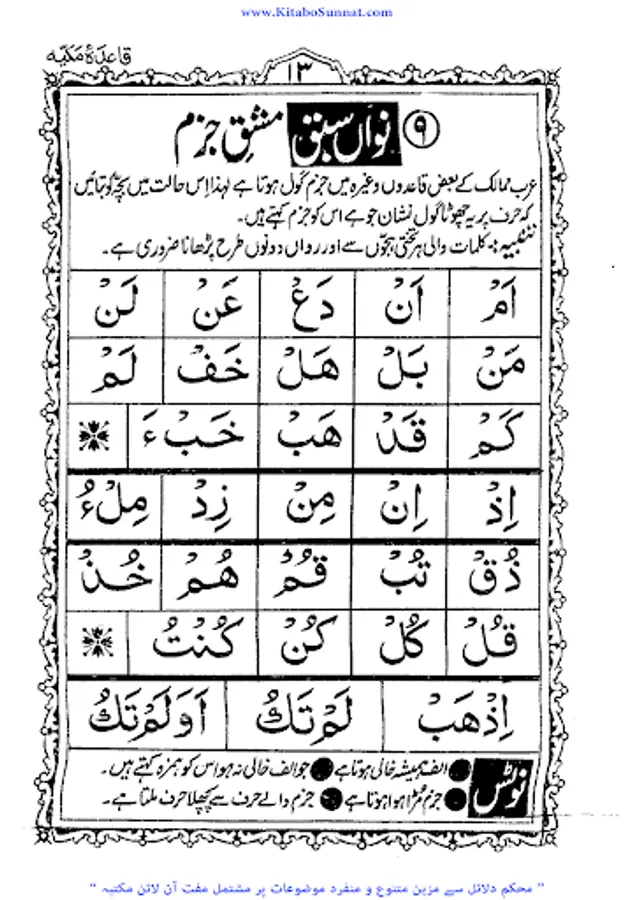 www.KitaboSunnat.com
قاعدہ مکیہ
۱۳
۹ نواں سبق مشق جزم
عرب ممالک کے بعض قاعدوں وغیرہ میں جزم گول ہوتا ہے لہٰذا اس حالت میں بچہ کو بتائیں
کہ حرف پر یہ چھوٹا گول نشان جو ہے اس کو جزم کہتے ہیں۔
تنبیہ :۔ کلمات والی ہر تختی ہجوں سے اور رواں دونوں طرح پڑھانا ضروری ہے۔
اَمْ اَنْ دَعْ عَنْ لَنْ
مَنْ بَلْ هَلْ خَفْ لَمْ
كَمْ قَدْ هَبْ خَبْءَ
اِذْ اِنْ مِنْ زِدْ مِلْءُ
ذُقْ تُبْ قُمْ هُمْ خُذْ
قُلْ كُلْ كُنْ كُنْتُ
اِذْهَبْ لَمْ تَكُ اَوَلَمْ تَكُ
نوٹس الف ہمیشہ خالی ہوتا ہے جو الف خالی نہ ہو اس کو ہمزہ کہتے ہیں۔
جزم مُڑا ہوا ہوتا ہے جزم والے حرف سے پچھلا حرف ملتا ہے۔
" محکم دلائل سے مزین متنوع و منفرد موضوعات پر مشتمل مفت آن لائن مکتبہ "